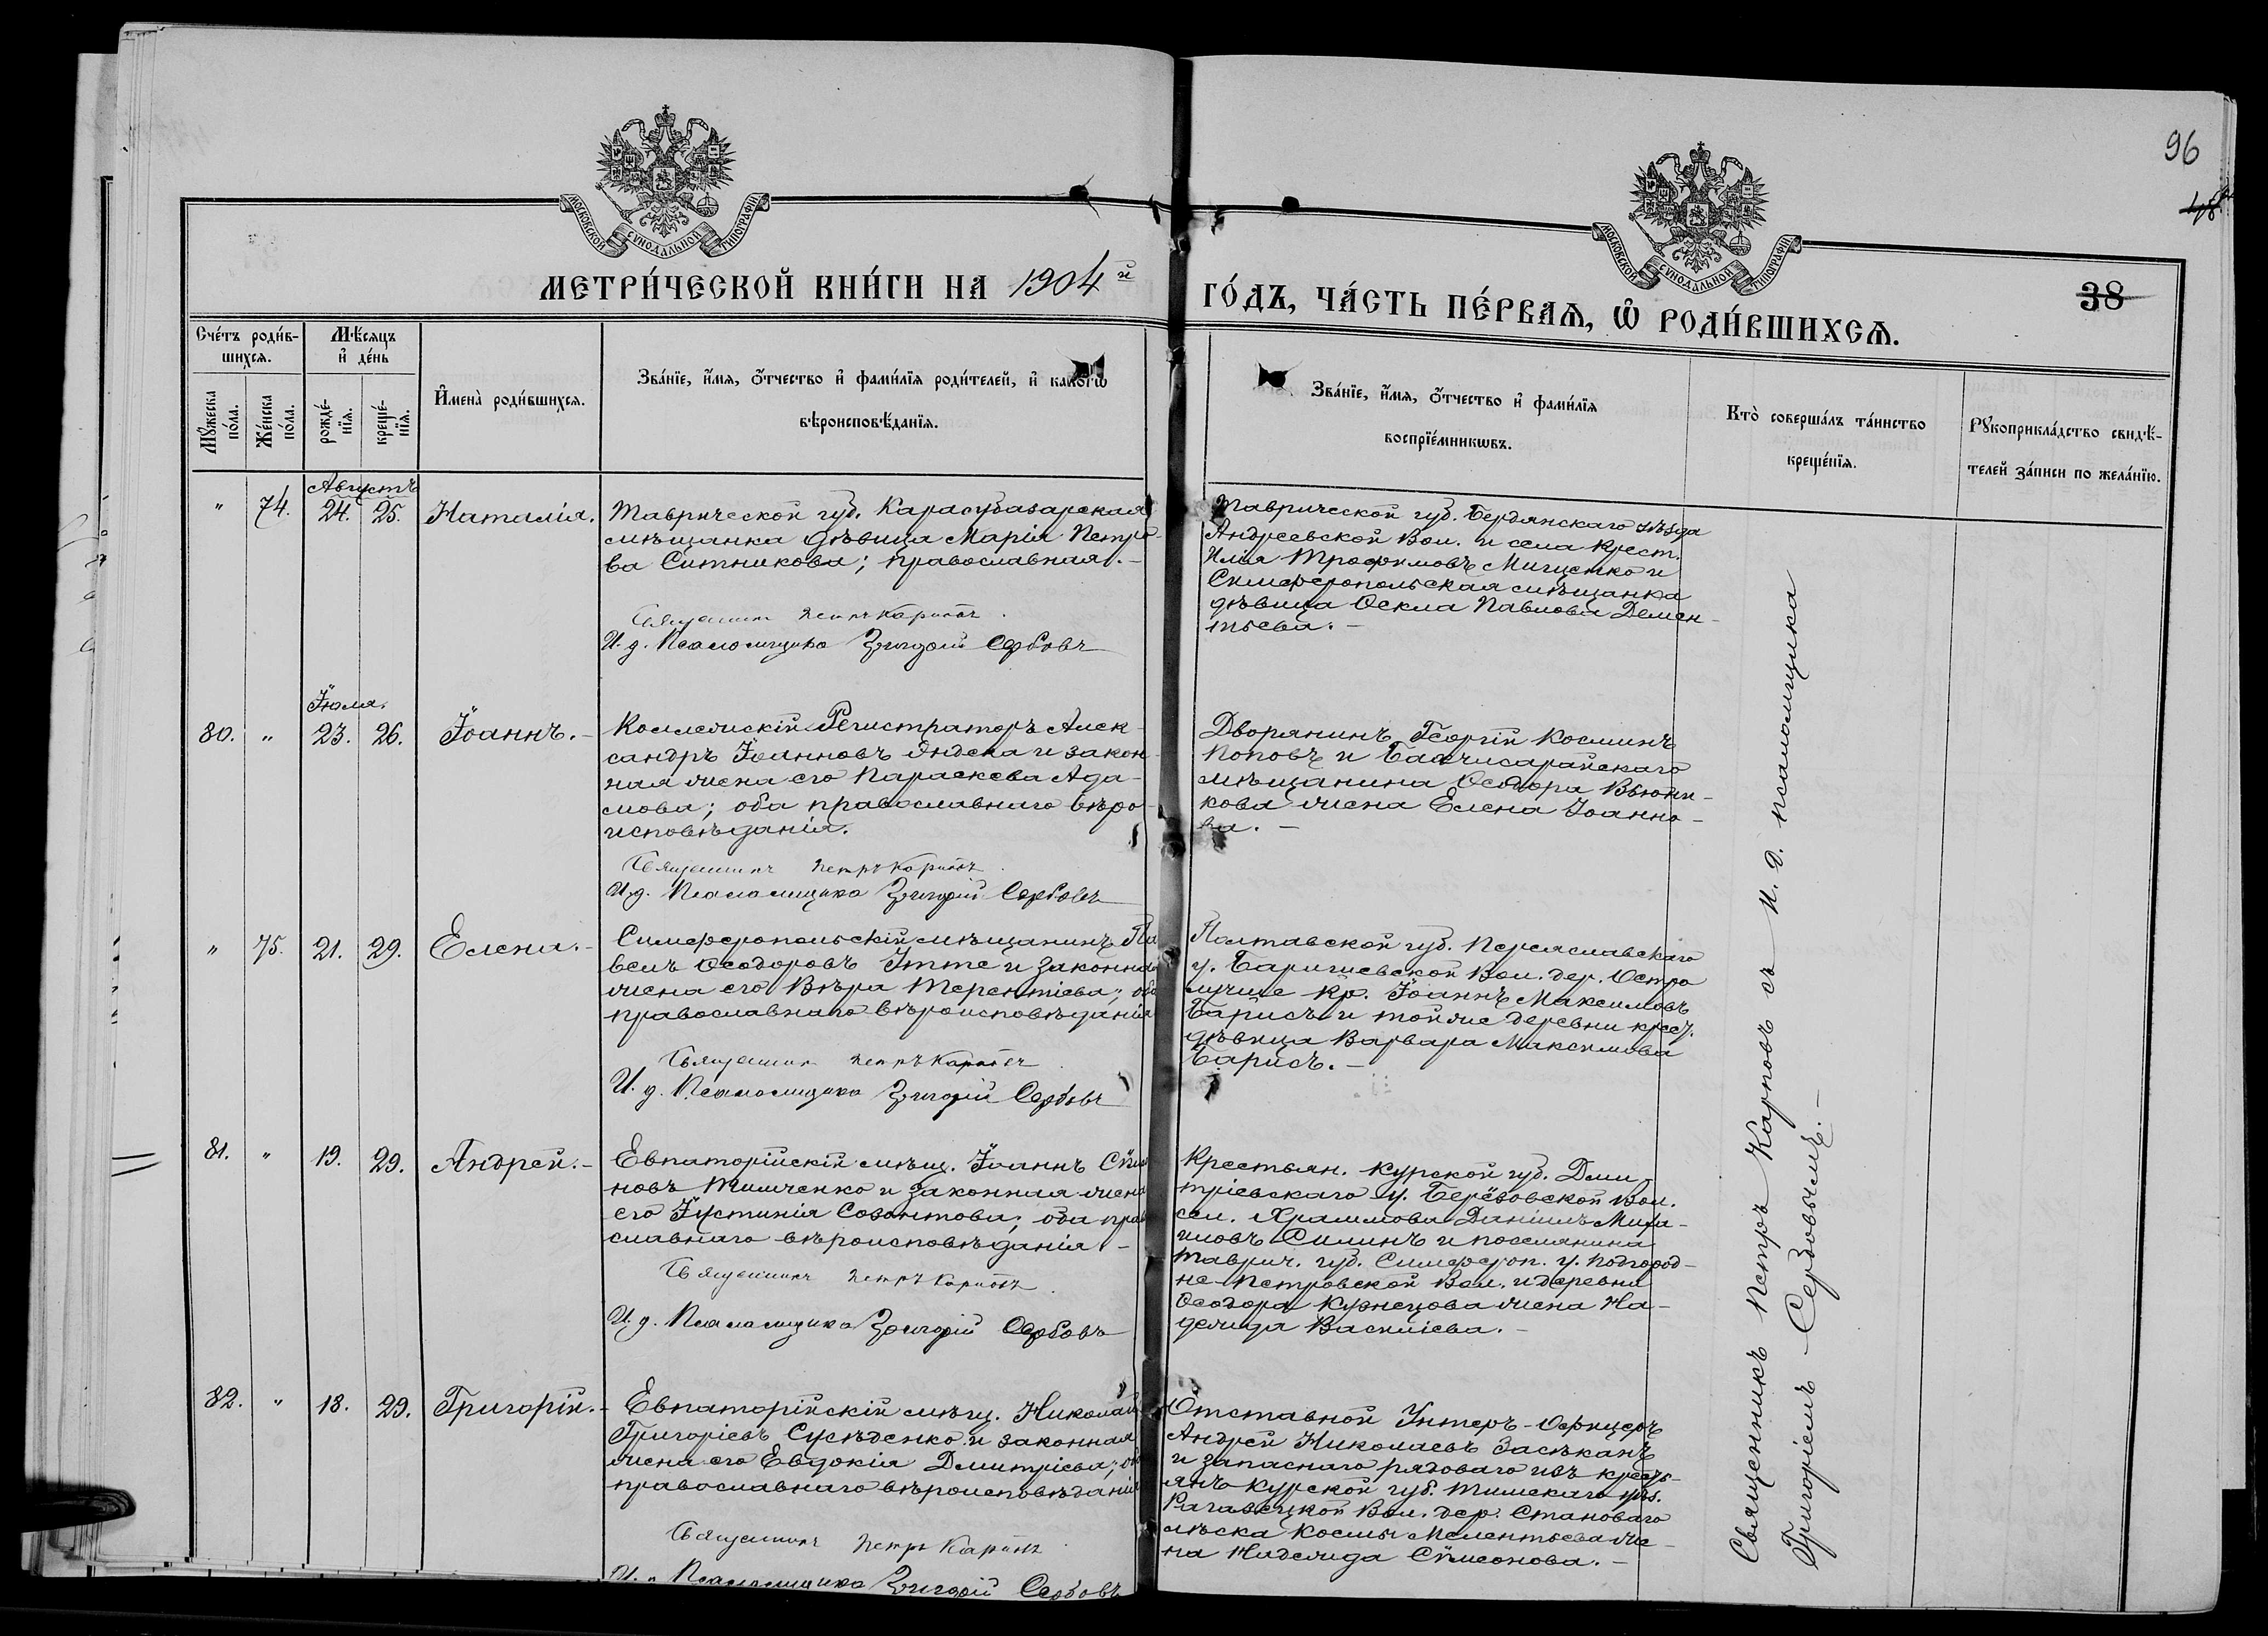 96
38
МОСКОВСКОЙ СУНОДАЛЬНОЙ ТИПОГРАФІИ
МОСКОВСКОЙ СУНОДАЛЬНОЙ ТИПОГРАФІИ
МЕТРИ́ЧЕСКОЙ КНИ́ГИ НА 1904й
ГО́ДЪ, ЧА́СТЬ ПЕ́РВАѦ, Ѡ҆ РОДИ́ВШИХСѦ.
Сче́тъ роди́в-
шихся.
Мѣ́сяцъ
и҆ де́нь
Мꙋ́жеска
по́ла.
Же́нска
по́ла.
рожде́-
нїя.
креще́-
нїя.
И҆мена̀ роди́вшихся.
Зва́нїе, и҆́мя, о҆́тчество и҆ фами́лїя роди́телей, и҆ какогѡ
вѣроисповѣ́данїя.
Зва́нїе, и҆́мя, о҆́тчество и҆ фами́лїя
воспрїе́мникѡвъ.
Кто̀ соверша́лъ та́инство
креще́нїя.
Рꙋкоприкла́дство свидѣ́-
телей за́писи по жела́нїю.
Августъ
" 74. 24. 25. Наталія.
Таврической губ. Карасубазарская
мѣщанка дѣвица Марія Петро-
ва Ситникова; православная.-
Священникъ Петръ Карповъ
И. д. Псаломщика Григорій Сербовъ
Таврической губ. Бердянскаго уѣзда
Андреевской Вол. и села Крест.
Илья Трофимовъ Мищенко и
Симферопольская мѣщанка
дѣвица Ѳекла Павлова Демен-
тьева.-
Іюля.
80. " 23. 26. Іоаннъ.-
Коллежскій Регистраторъ Алек-
сандръ Іоанновъ Яндека и закон-
ная жена его Параскева Ада-
мова; оба православнаго вѣро-
исповѣданія.
Священникъ Петръ Карповъ
И. д. Псаломщика Григорій Сербовъ
Дворянинъ Георгій Косминъ
Поповъ и Бахчисарайскаго
мѣщанина Ѳеодора Вьюни-
кова жена Елена Іоанно-
ва.-
" 75. 21. 29. Елена.-
Симферопольскій мѣщанинъ Па
велъ Ѳеодоровъ Ітте и законная
жена его Вѣра Терентіева; оба
православнаго вѣроисповѣданія
Священникъ Петръ Карповъ
И. д. Псаломщика Григорій Сербовъ
Полтавской губ. Переяславскаго
у. Баришевской Вол. дер. Остро
лучье кр. Іоаннъ Максимовъ
Барисъ и той же деревни крест.
дѣвица Варвара Максимова
Барисъ.-
81. " 19. 29. Андрей.-
Евпаторійскій мѣщ. Іоаннъ Сѵмо
новъ Тимченко и законная жена
его Іустинія Созонтова; оба право
славнаго вѣроисповѣданія-
Священникъ Петръ Карповъ
И. д. Псаломщика Григорій Сербовъ
Крестьян. Курской губ. Дми
тріевскаго у. Берёзовской Вол.
сел. Храпмова Даніилъ Миха-
иловъ Силинъ и поселянина
Таврич. губ. Симфероп. у. Подгород-
не-Петровской Вол. и деревни
Ѳеодора Кузнецова жена На-
дежда Василіева.-
82. " 18. 29. Григорій.-
Евпаторійскій мѣщ. Николай
Григоріевъ Сусѣденко и законная
жена его Евдокія Димитріева; оба
православнаго вѣроисповѣданія
Священникъ Петръ Карповъ
И. д. Псаломщика Григорій Сербовъ
Отставной Унтеръ-Офицеръ
Андрей Николаевъ Засѣканъ
и запаснаго рядоваго изъ крестъ-
янъ Курской губ. Тимскаго уѣз.
Рагавецкой Вол. дер. Становаго
лѣска Космы Мелентьева же-
на Надежда Сѵмеонова.-
Священникъ Петръ Карповъ съ и. д. псаломщика
Григоріемъ Сербовымъ.-